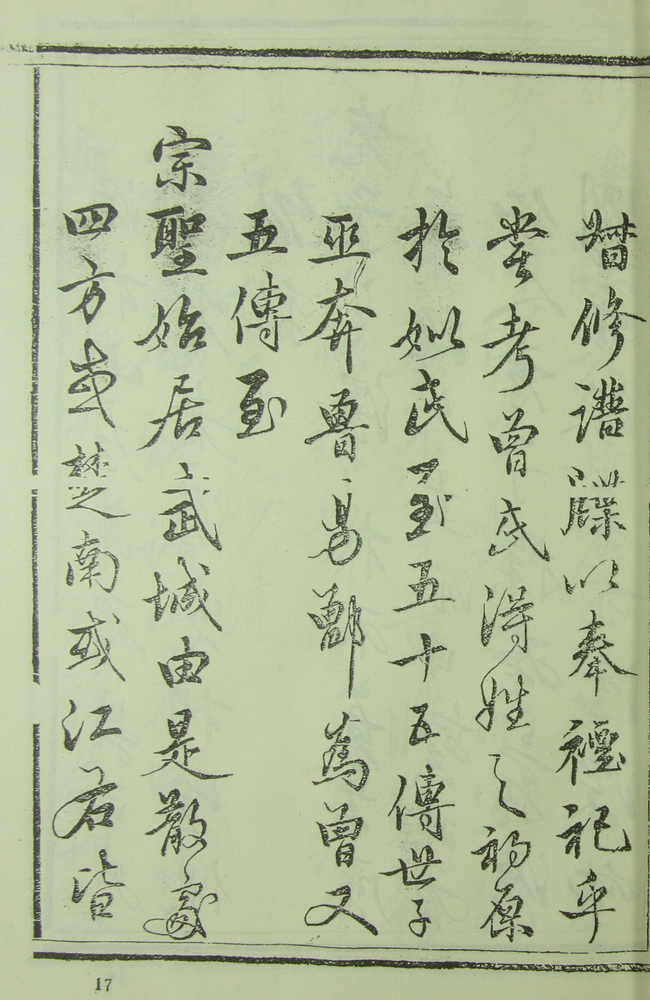 暜修譜牒以奉禋祀乎
嘗考曾氏得姓之初原
於姒氏至五十五傳世子
巫奔魯易鄫為曾又
五傳至
宗聖始居武城由是散處
四方或楚南或江右皆
17